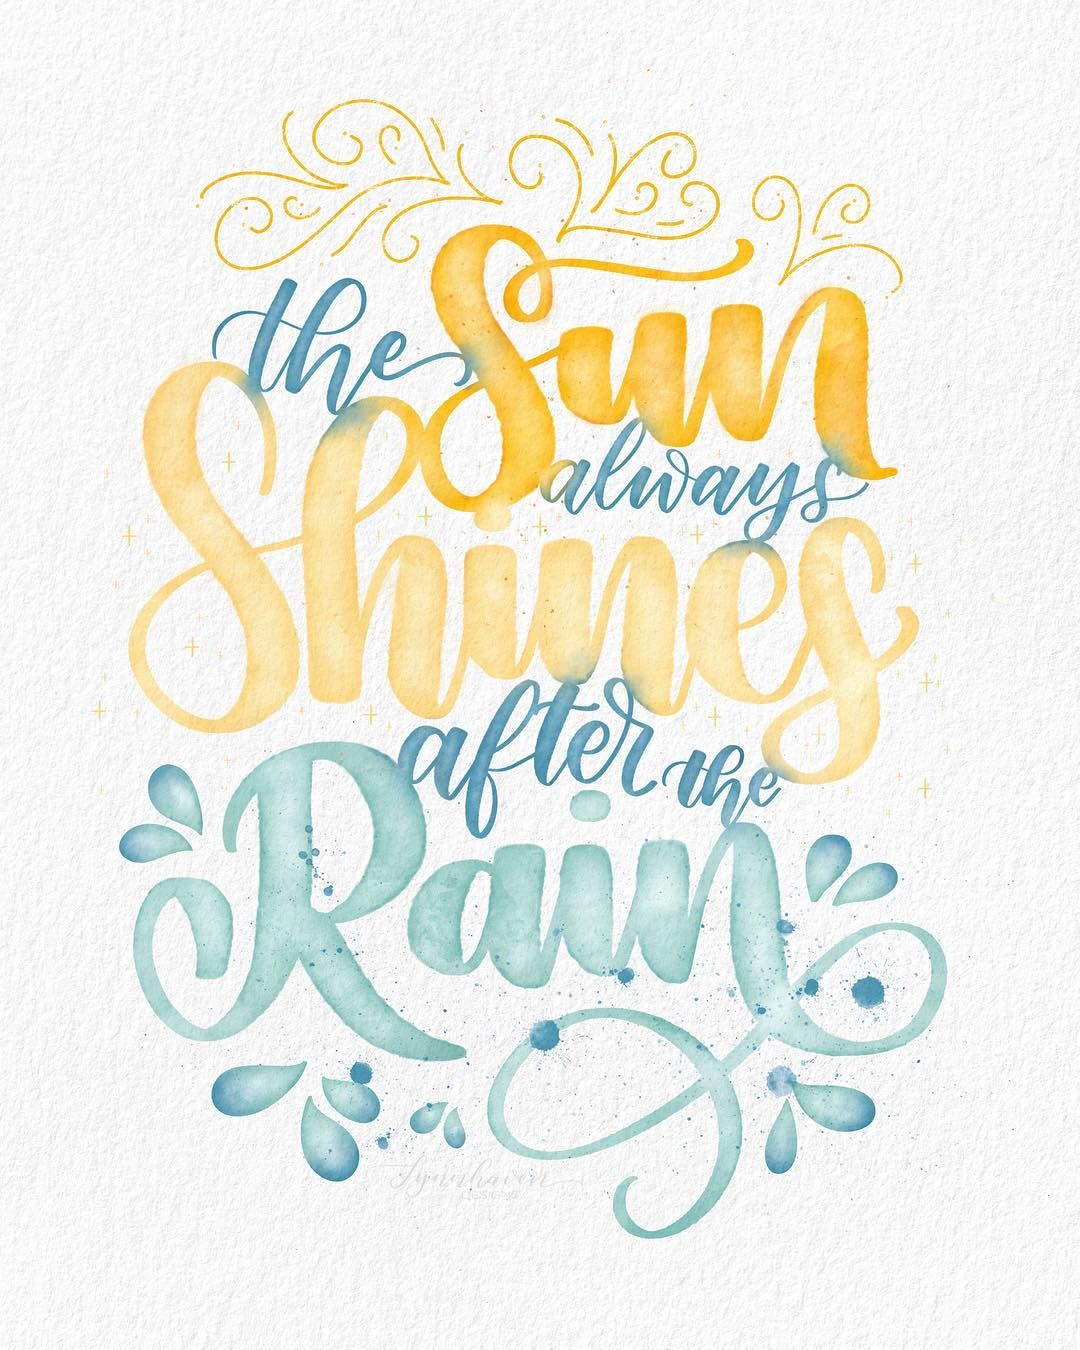 the Sun
always
Shines
after the
Rain
Lynnhaven
DESIGNS